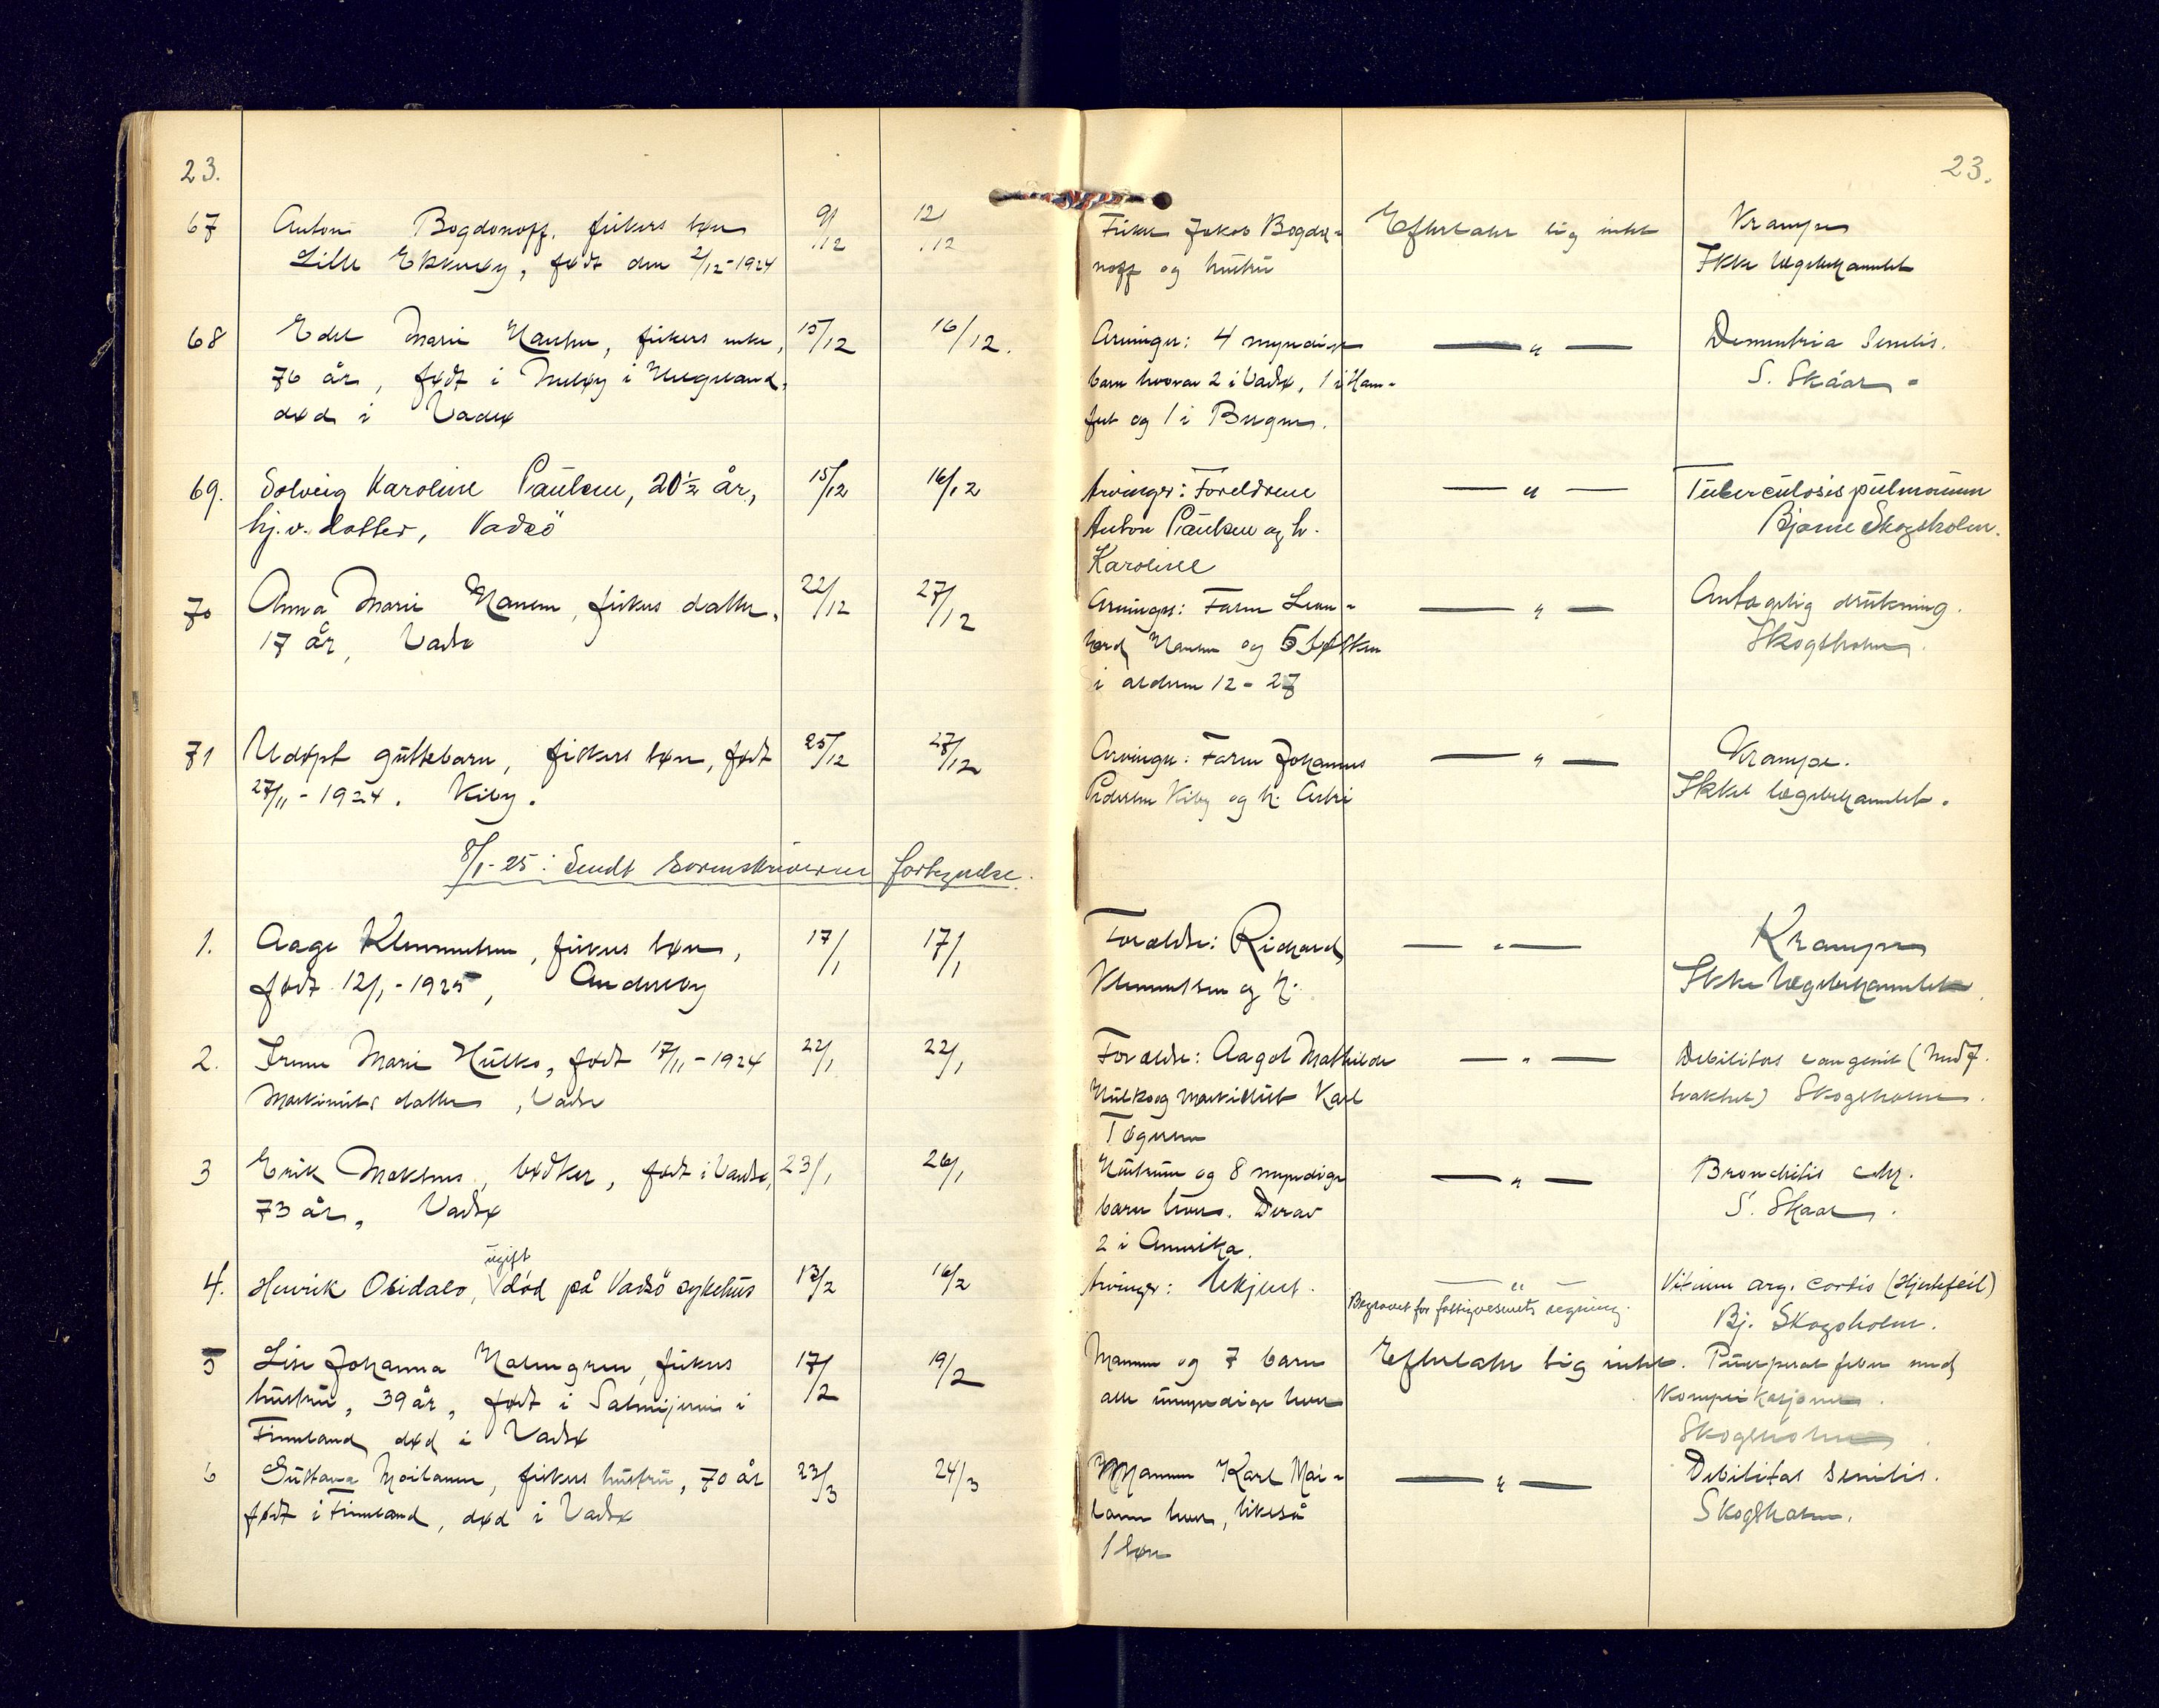 23.
23.
67 Anton Bogdonoff, fiskers søn 9/12 12/12 Fisker Jakob Bogdo- Efterlater sig intet Krampe
Lille Ekkerøy, født den 2/12-1924 noff og hustru Ikke lægebehandlet
68 Edel Marie Hansen, fiskers enke, 15/12 16/12. Arvinger: 4 myndige — " — Dementria Senilis.
76 år, født i i Helgeland, barn hvorav 2 i Vadsø, 1 i Ham- S. Skåar
død i Vadsø fest og 1 i Bugnes.
69. Solveig Karoline Paulsen, 20½ år, 15/12 16/12 Arvinger: Foreldrene — " — Tuberculosis pulmonum
hj.v. datter, Vadsö Anton Paulsen og h. Bjarne Skogsholm.
Karoline
70 Anna Marie Hansen, fiskers datter, 22/12 27/12 Arvinger: Faren Leon- — " — Antagelig drukning.
17 år, Vadsø hard Hansen og 5 søsken Skogsholm.
i alderen 12-27
71 Udøpt guttebarn, fiskers søn, født 25/12 27/12 Arvinger: Faren Johannes — " — Krampe.
27/11-1924. Kiby. Pedersen Kiby og h. Astri Ikke lægebehandlet.
8/1-25: Sendt Sorenskriveren fortegnelse.
1. Aage Klemmetsen, fiskers søn, 17/1 17/1 Forældre: Richard — " — Krampe
født 12/1-1925, Andersby Klemmetsen og h. Ikke lægebehandlet
2. Irene Marie Hulko, født 17/11-1924 22/1 22/1 Forældre: Aagot Mathilde — " — Debilitas congenit (medf.
Maskinists datter, Vadsø Hulko og maskinist Karl svakhet) Skogsholm.
Tøgersen
3 Erik , bødker, født i Vadsø, 23/1 26/1 Hustruen og 8 myndige — " — Bronchitis chr.
73 år, Vadsø barn lever. Derav S. Skaar.
2 i Amerika.
ugift
4. Henrik Osidalo, død på Vadsö sykehus 13/2 16/2 Arvinger: Ukjent. — " — Vitium org. cordis (Hjertefeil)
Begravet for fattigvesenets regning. Bj. Skogsholm.
5 Lise Johanna Malmgren, fiskers 17/2 19/2 Mannen og 7 barn Efterlater sig intet. Puerperal feber med
hustru, 39 år, født i Salmijervi i alle umyndige lever Komplikasjoner.
Finnland død i Vadsø Skogsholm
6 Gustava Moilanen, fiskers hustru, 70 år 23/3 24/3 Mannen Karl Moi- — " — Debilitas senilis.
født i Finnland, død i Vadsø lanen lever, likeså Skogsholm.
1 søn